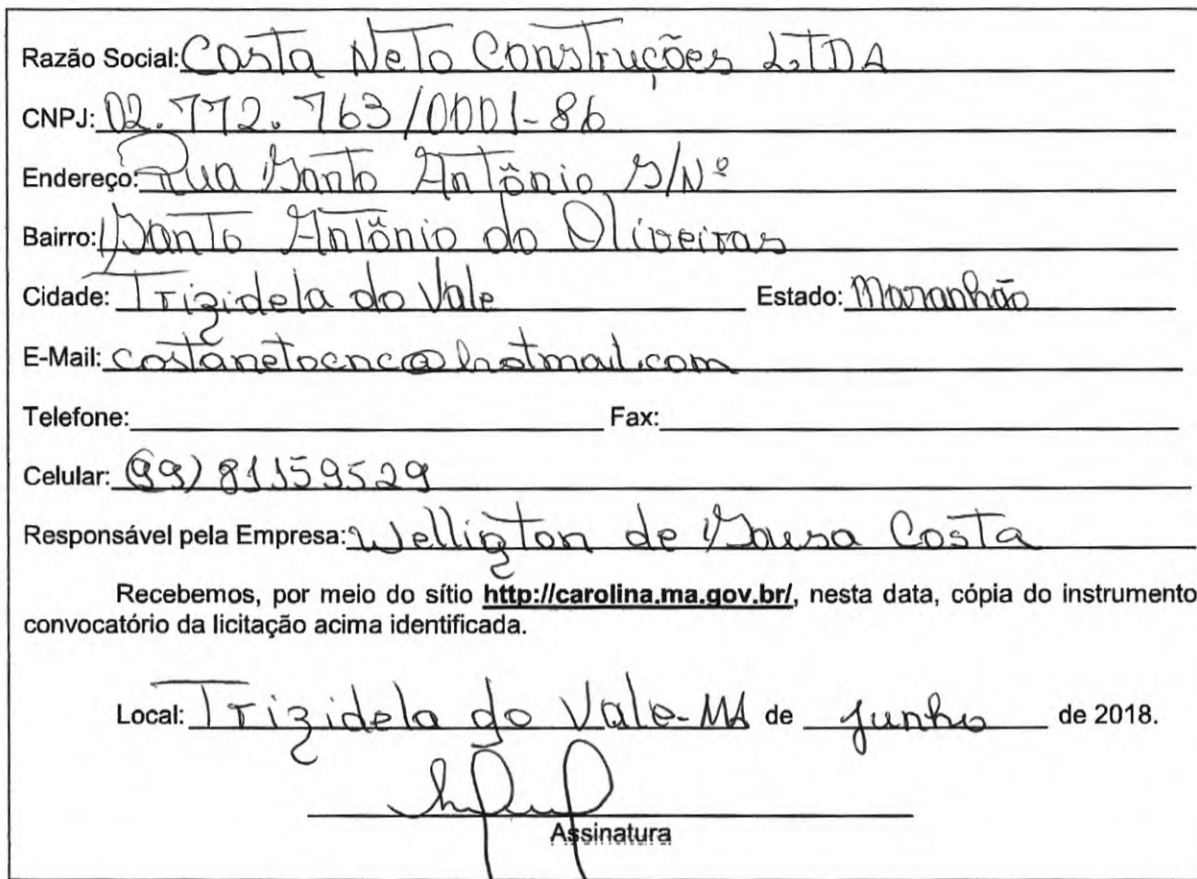 Razão Social: Costa Neto Construções LTDA
CNPJ: 02.772.763/0001-86
Endereço: Rua Santo Antônio S/Nº
Bairro: Santo Antônio do Oliveiras
Cidade: Trizidela do Vale Estado: Maranhão
E-Mail: costanetocnc@hotmail.com
Telefone: Fax:
Celular: (99) 81159529
Responsável pela Empresa: Welligton de Sousa Costa
Recebemos, por meio do sítio http://carolina.ma.gov.br/, nesta data, cópia do instrumento
convocatório da licitação acima identificada.
Local: Trizidela do Vale-MA de junho de 2018.
Assinatura